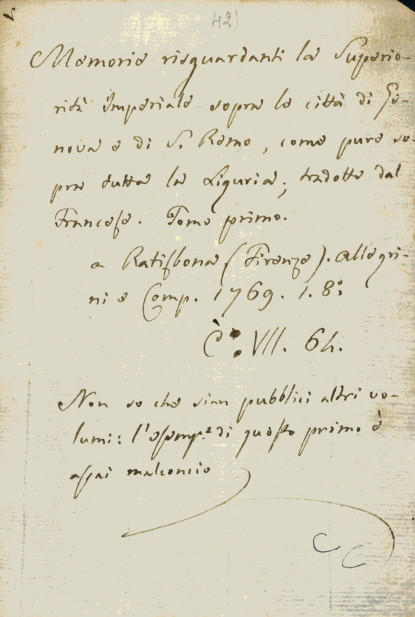 42)
Memorie risguardanti la Superio-
rità Imperiale sopra le città di Ge-
nova e di S. Remo, come pure so-
pra tutta la Liguria; tradotte dal
Francese. Tomo primo.
a Ratisbona (Firenze). Allegri-
ni e Comp. 1769. 1. 8:
È: VII. 64.
Non so che sian pubblici altri vo-
lumi: l'esemp.e di questo primo è
assai malconcio
C C